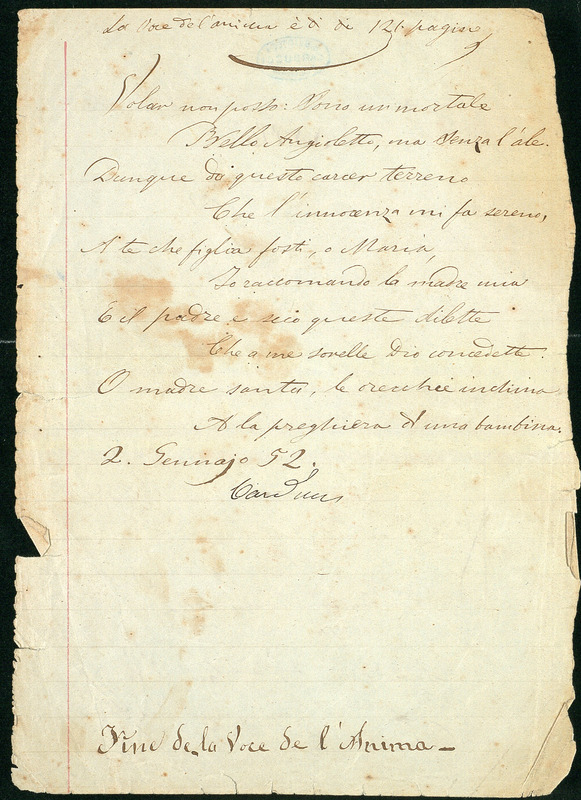 La Voce de l'anima è di 121 pagine
Volar non posso: Sono un mortale
Bello Angioletto, ma senza l'ale.
Dunque da questo carcer terreno
Che l'innocenza mi fa sereno,
A te che figlia fosti, o Maria,
Io raccomando la madre mia
E il padre e seco queste dilette
Che a me sorelle Dio concedette.
O madre santa, le orecchie inclina
A la preghiera d'una bambina.
2. Gennajo 52.
Carducci
Fine de la Voce de l'Anima -